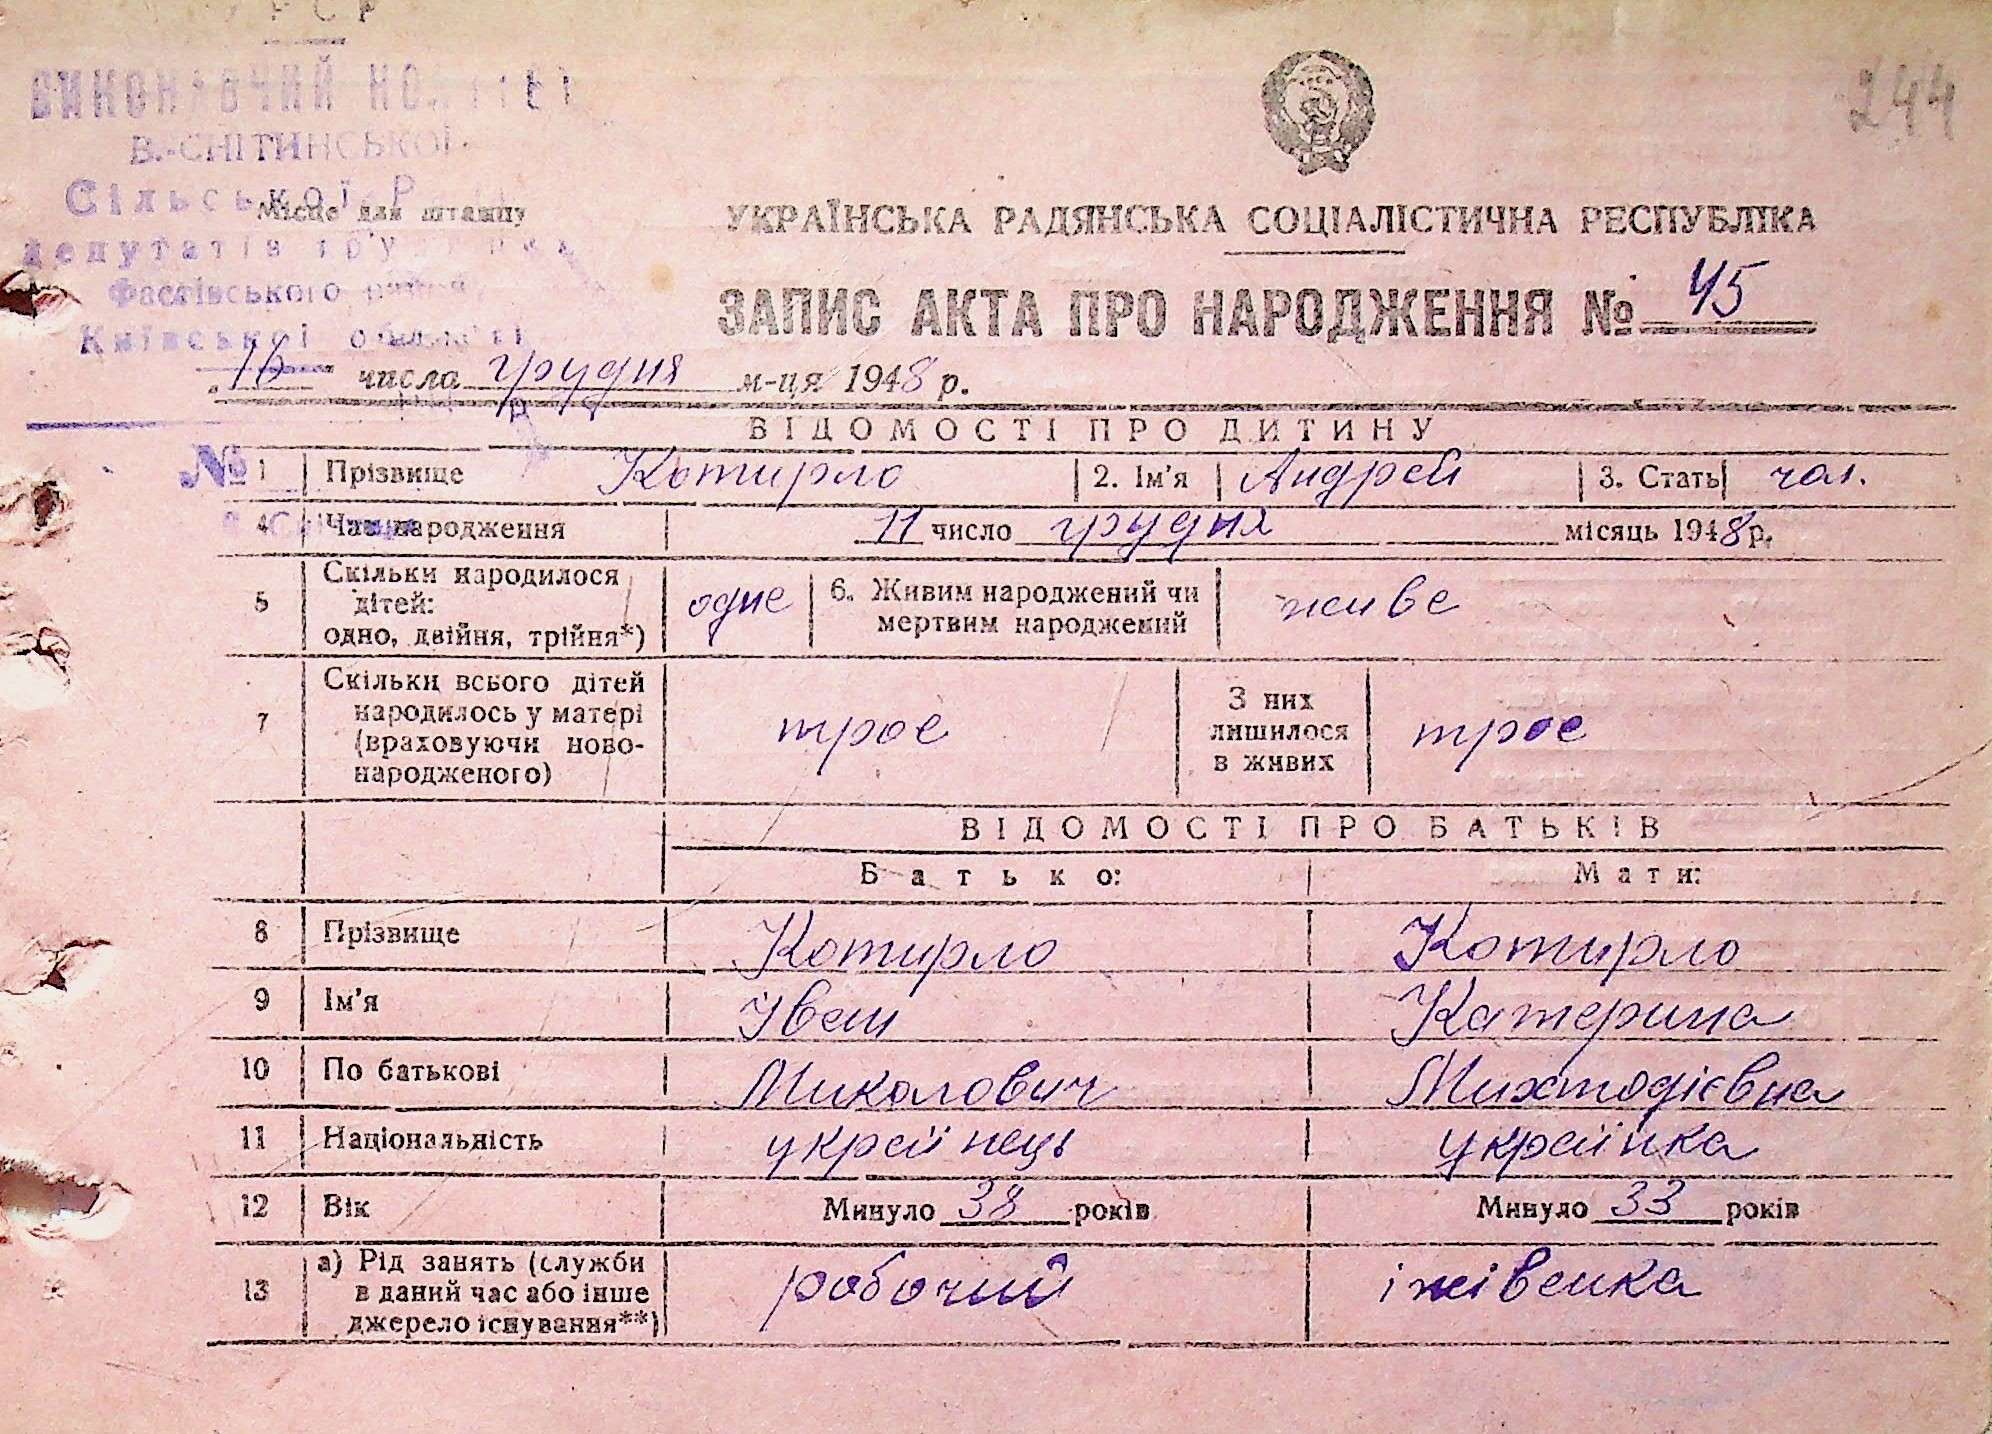 УРСР
ВИКОНАВЧИЙ КОМІТЕТ
В.-СНІТИНСЬКОЇ
Сільської Р
Місце для штампу
депутатів тру
Фастівського району
Київської області
244
УКРАЇНСЬКА РАДЯНСЬКА СОЦІАЛІСТИЧНА РЕСПУБЛІКА
ЗАПИС АКТА ПРО НАРОДЖЕННЯ № 45
„16" числа грудня м-ця 1948 р.
ВІДОМОСТІ ПРО ДИТИНУ
№
1 Прізвище Котирло 2. Ім'я Андрей 3. Стать чол.
4 Час народження 11 число грудня місяць 1948 р.
5 Скільки народилося дітей: одно, двійня, трійня*) одне 6. Живим народжений чи мертвим народжений живе
7 Скільки всього дітей народилось у матері (враховуючи ново-народженого) троє З них лишилося в живих троє
ВІДОМОСТІ ПРО БАТЬКІВ
Батько: Мати:
8 Прізвище Котирло Котирло
9 Ім'я Іван Катерина
10 По батькові Миколович Михтодієвна
11 Національність українець українка
12 Вік Минуло 38 років Минуло 33 років
13 а) Рід занять (служби в даний час або інше джерело існування**) робочий іжівенка